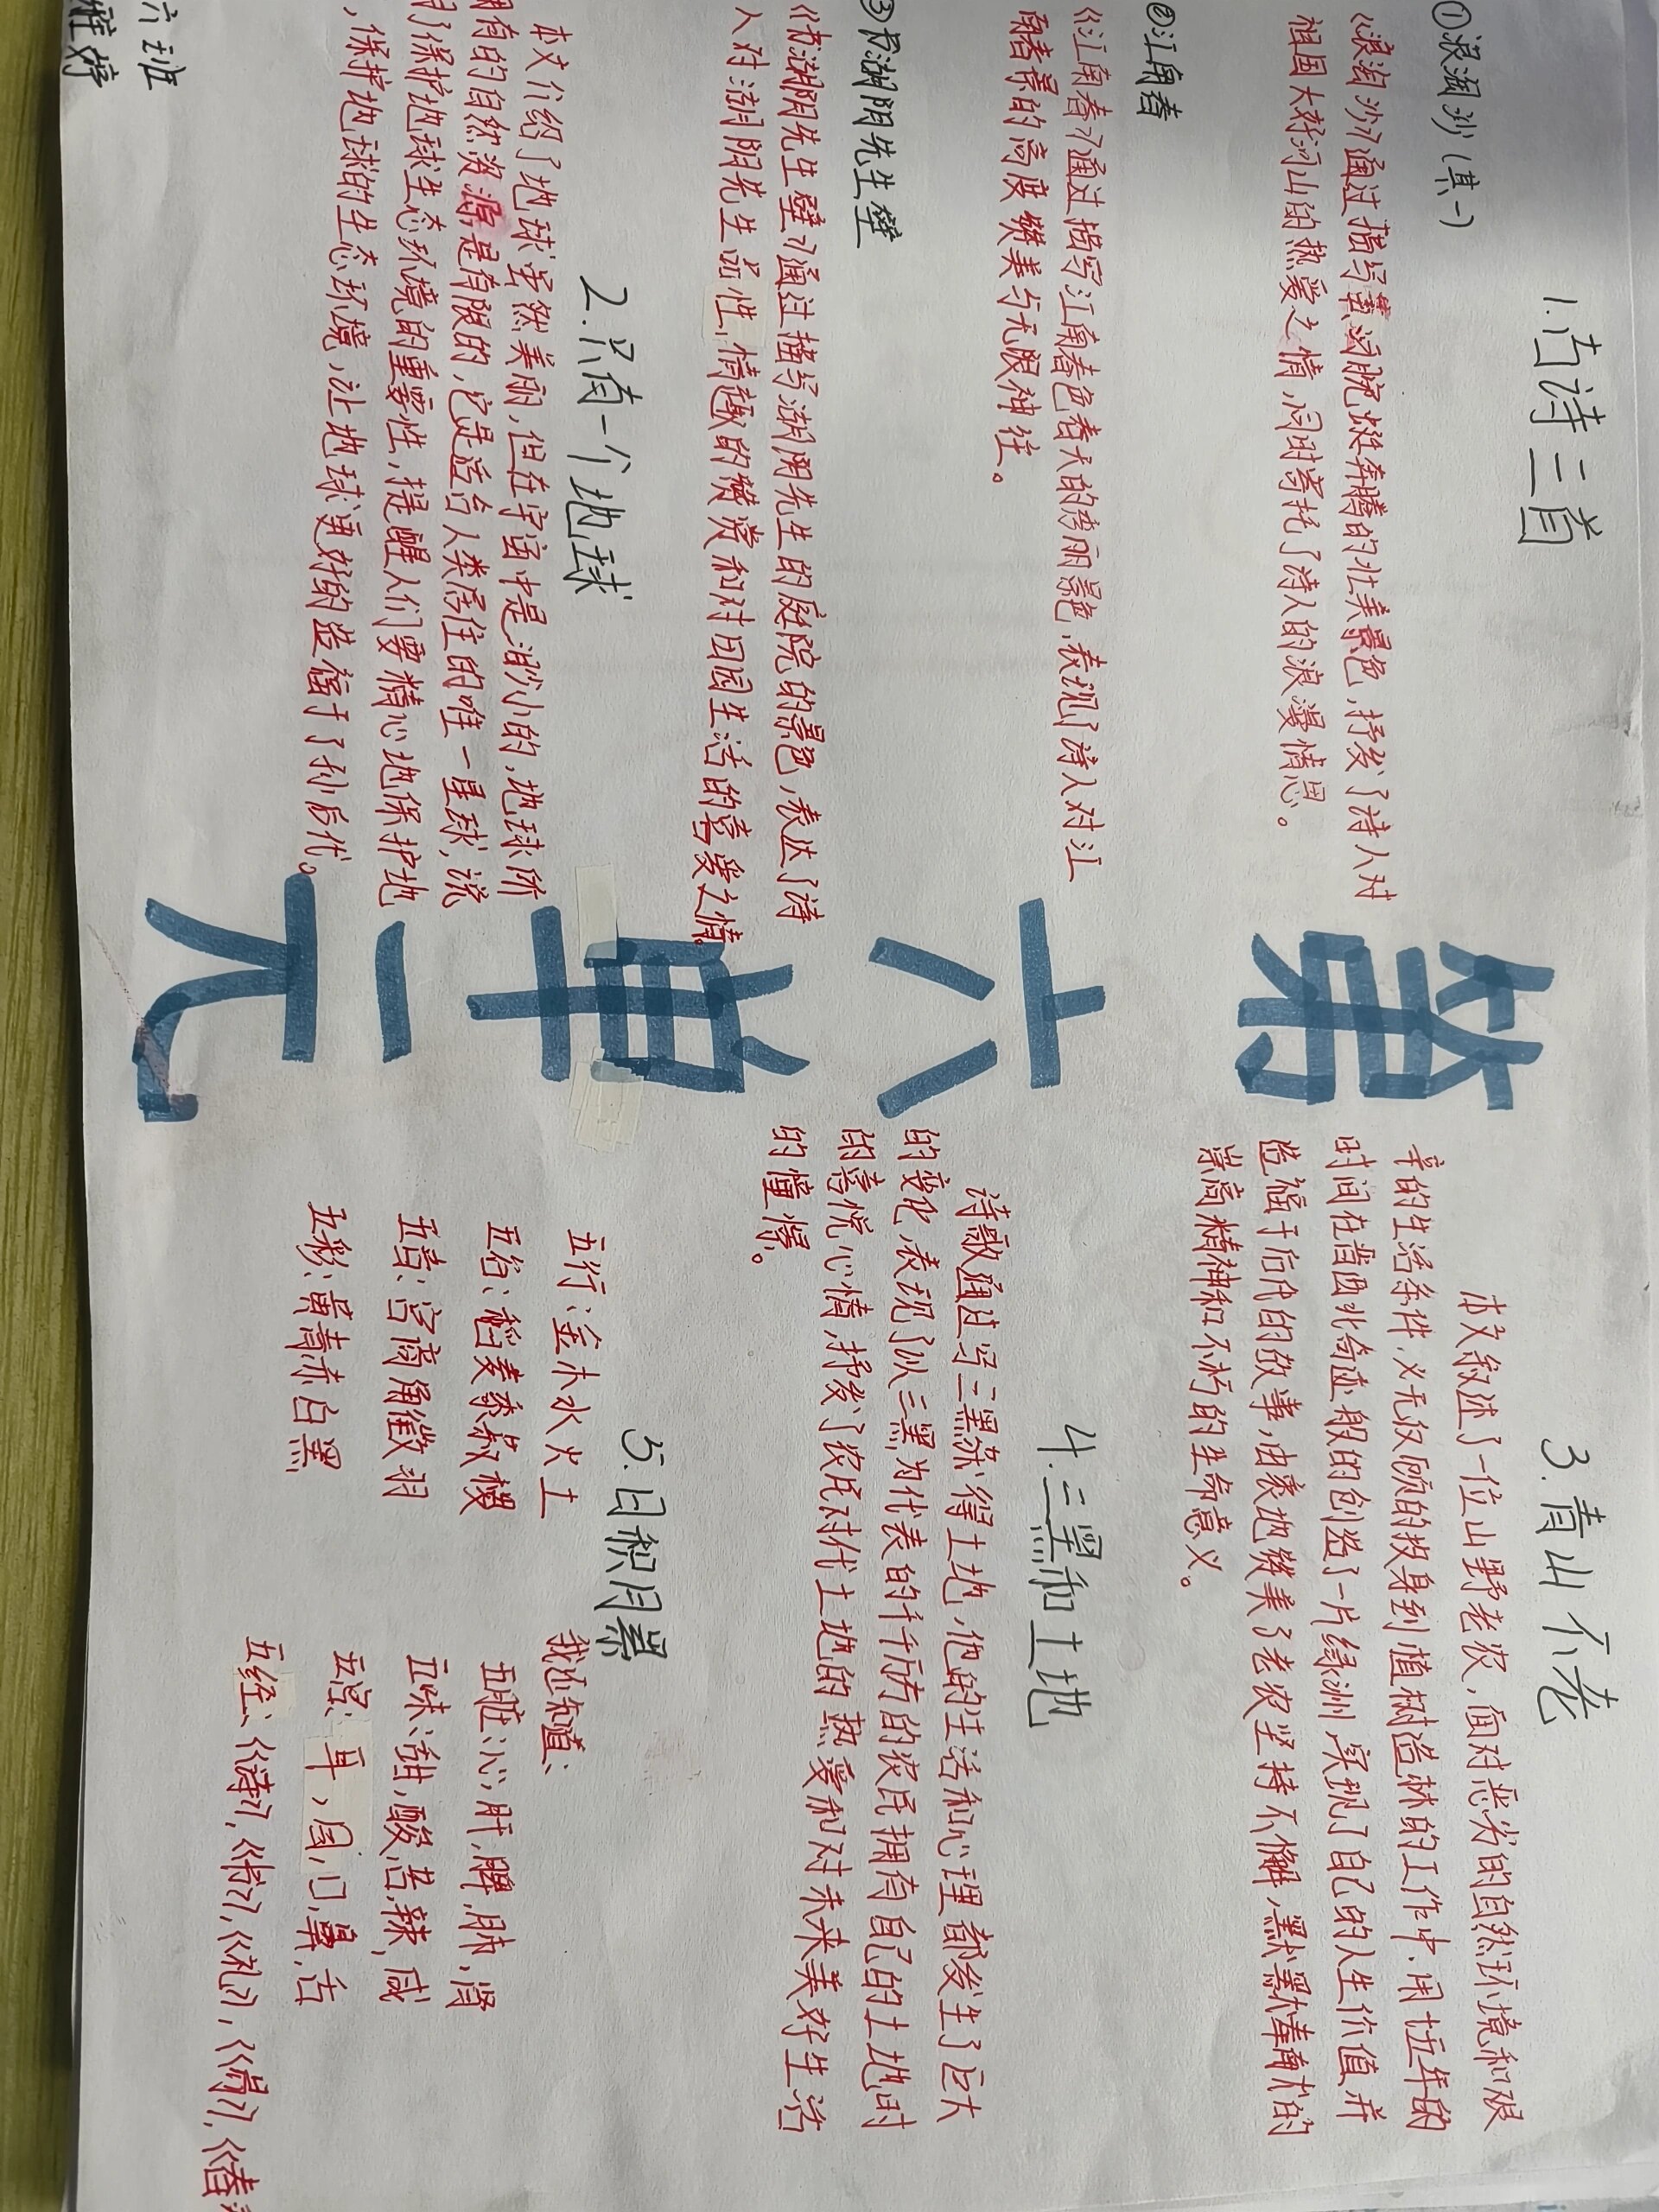 1.古诗三首
①浪淘沙(其一)
《浪淘沙》通过描写黄河蜿蜒奔腾的壮美景色,抒发了诗人对
祖国大好河山的热爱之情,同时寄托了诗人的浪漫情思。
②江南春
《江南春》通过描写江南春色春天的秀丽景色,表现了诗人对江
南春景的高度赞美与无限神往。
③书湖阴先生壁
《书湖阴先生壁》通过描写湖阴先生的庭院的景色,表达了诗
人对湖阴先生品性,情趣的赞赏和对田园生活的喜爱之情。
2.只有一个地球
本文介绍了地球虽然美丽,但在宇宙中是渺小的,地球所
拥有的自然资源是有限的,它是适合人类居住的唯一星球,
了保护地球生态环境的重要性,提醒人们要精心地保护地
,保护地球的生态环境,让地球更好的造福于子孙后代。
第六单元
3.青山不老
本文叙述了一位山野老农,面对恶劣的自然环境和艰
辛的生活条件,义无反顾的投身到植树造林的工作中,用十五年的
时间在晋西北奇迹般的创造了一片绿洲,实现了自己的人生价值,并
造福于后代的故事,由衷地赞美了老农坚持不懈,默默奉献的
崇高精神和不朽的生命意义。
4.三黑和土地
诗歌通过写三黑获得土地,他的生活和心理都发生了巨大
的变化,表现了以三黑为代表的千千万万的农民拥有自己的土地时
的喜悦心情,抒发了农民对代土地的热爱和对未来美好生活
的憧憬。
5.日积月累
五行:金木水火土
五谷:稻麦黍菽稷
五音:宫商角徵羽
五彩:黄青赤白黑
我还知道:
五脏:心,肝,脾,肺,肾
五味:甜,酸,苦,辣,咸
五官:耳,眉,口,鼻,舌
五经:《诗》,《书》,《礼》,《易》,《春
六班
雅婷